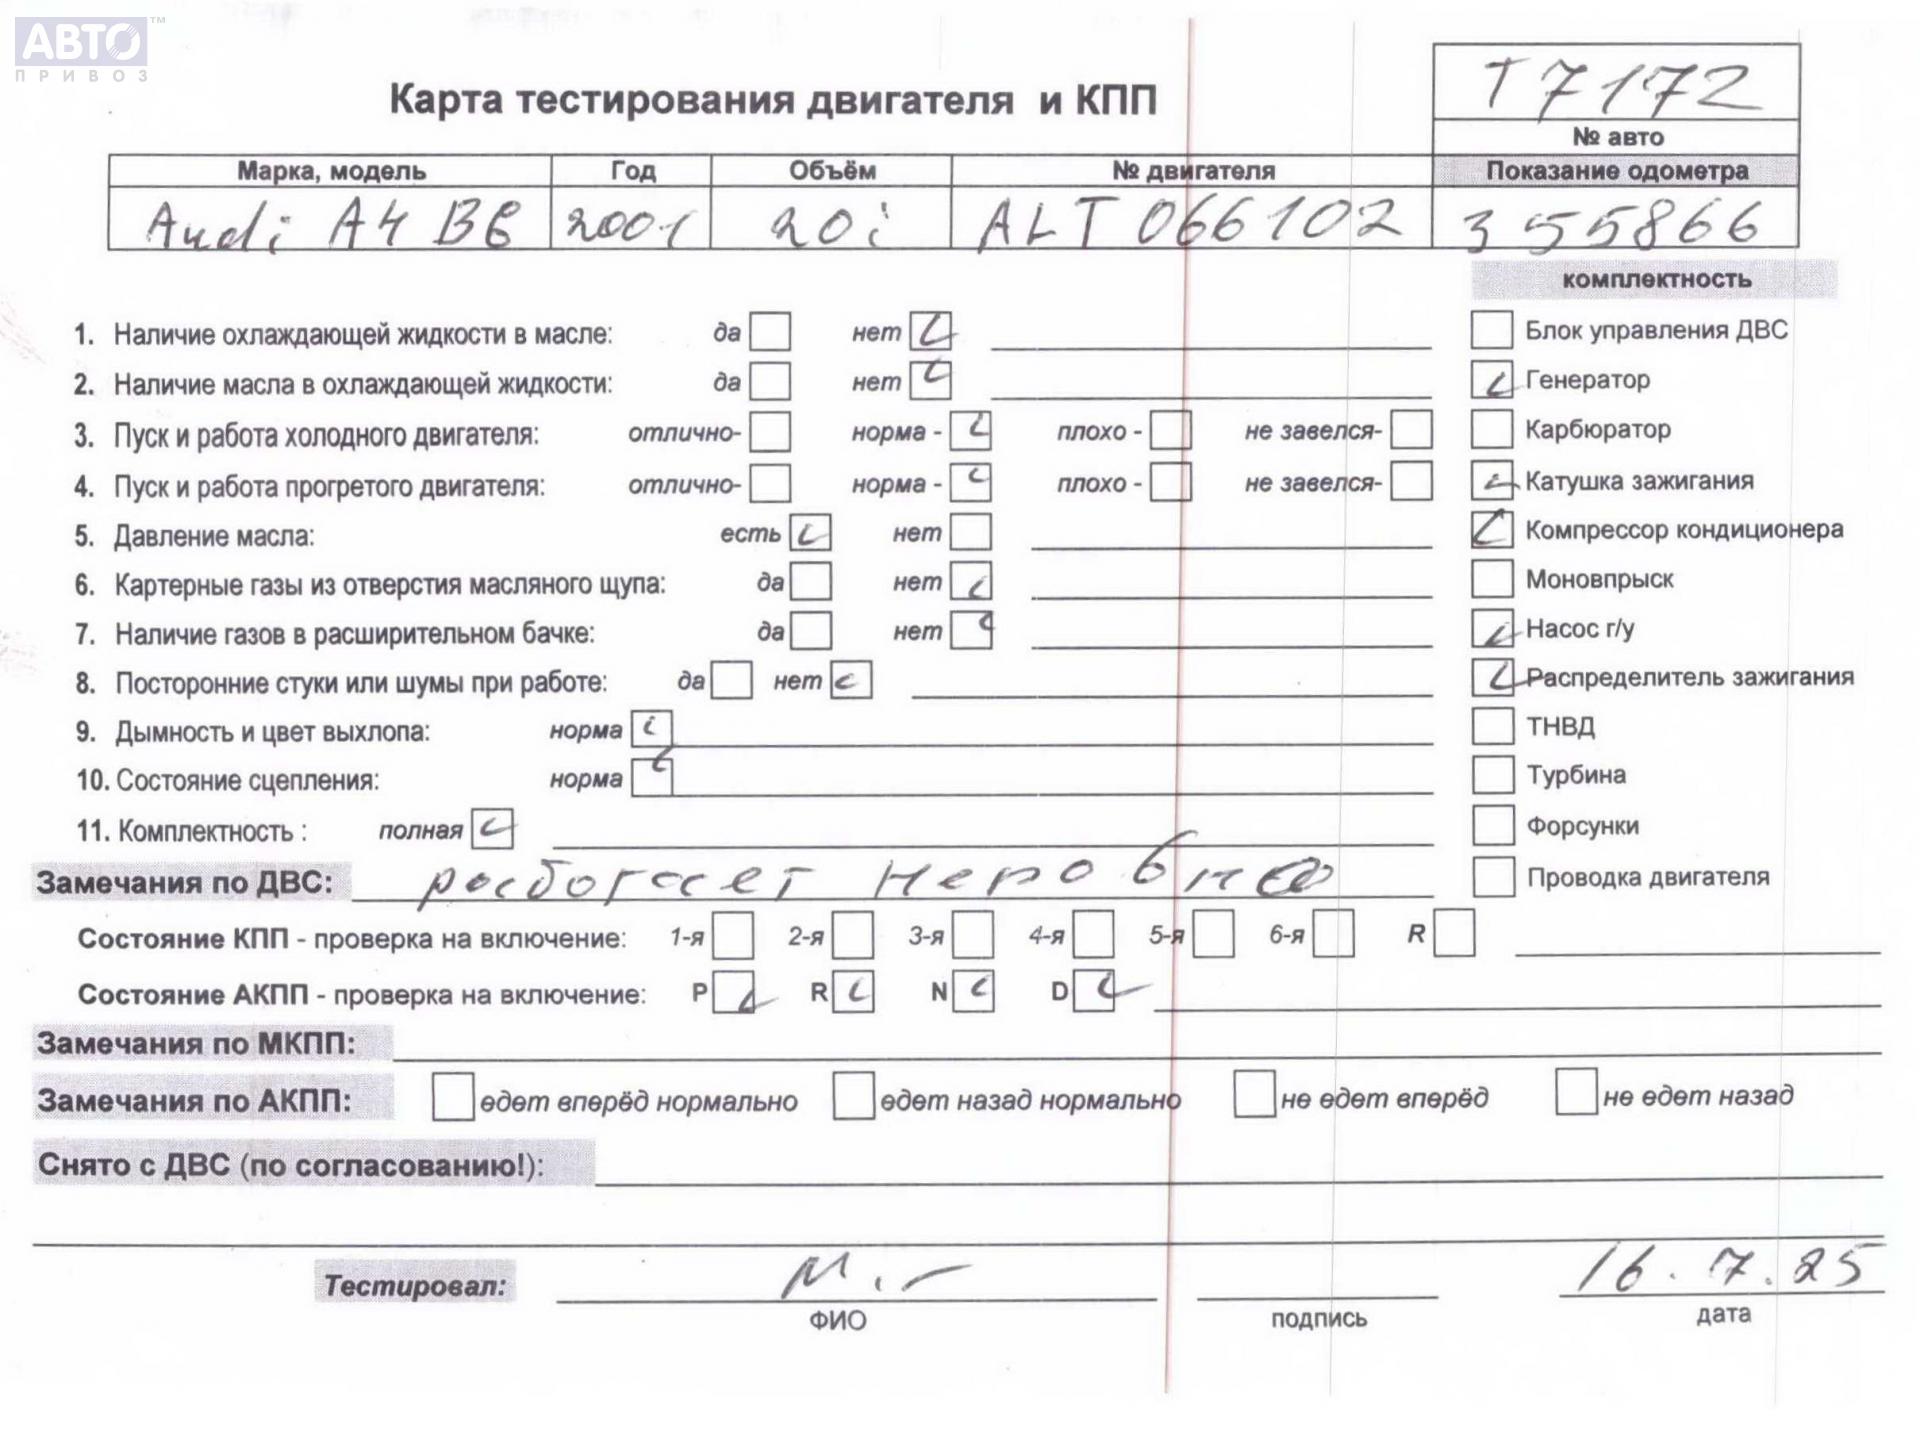 АВТО™
ПРИВОЗ
Карта тестирования двигателя и КПП
T7172
№ авто
Марка, модель Год Объём № двигателя Показание одометра
Audi A4 B6 2001 20i ALT 066102 355866
комплектность
1. Наличие охлаждающей жидкости в масле: да нет
Блок управления ДВС
2. Наличие масла в охлаждающей жидкости: да нет
Генератор
3. Пуск и работа холодного двигателя: отлично- норма - плохо - не завелся-
Карбюратор
4. Пуск и работа прогретого двигателя: отлично- норма - плохо - не завелся-
Катушка зажигания
5. Давление масла: есть нет
Компрессор кондиционера
6. Картерные газы из отверстия масляного щупа: да нет
Моновпрыск
7. Наличие газов в расширительном бачке: да нет
Насос г/у
8. Посторонние стуки или шумы при работе: да нет
Распределитель зажигания
9. Дымность и цвет выхлопа: норма
ТНВД
10. Состояние сцепления: норма
Турбина
11. Комплектность : полная
Форсунки
Замечания по ДВС: работает неровно
Проводка двигателя
Состояние КПП - проверка на включение: 1-я 2-я 3-я 4-я 5-я 6-я R
Состояние АКПП - проверка на включение: P R N D
Замечания по МКПП:
Замечания по АКПП: едет вперёд нормально едет назад нормально не едет вперёд не едет назад
Снято с ДВС (по согласованию!):
Тестировал: 16.7.25
ФИО подпись дата